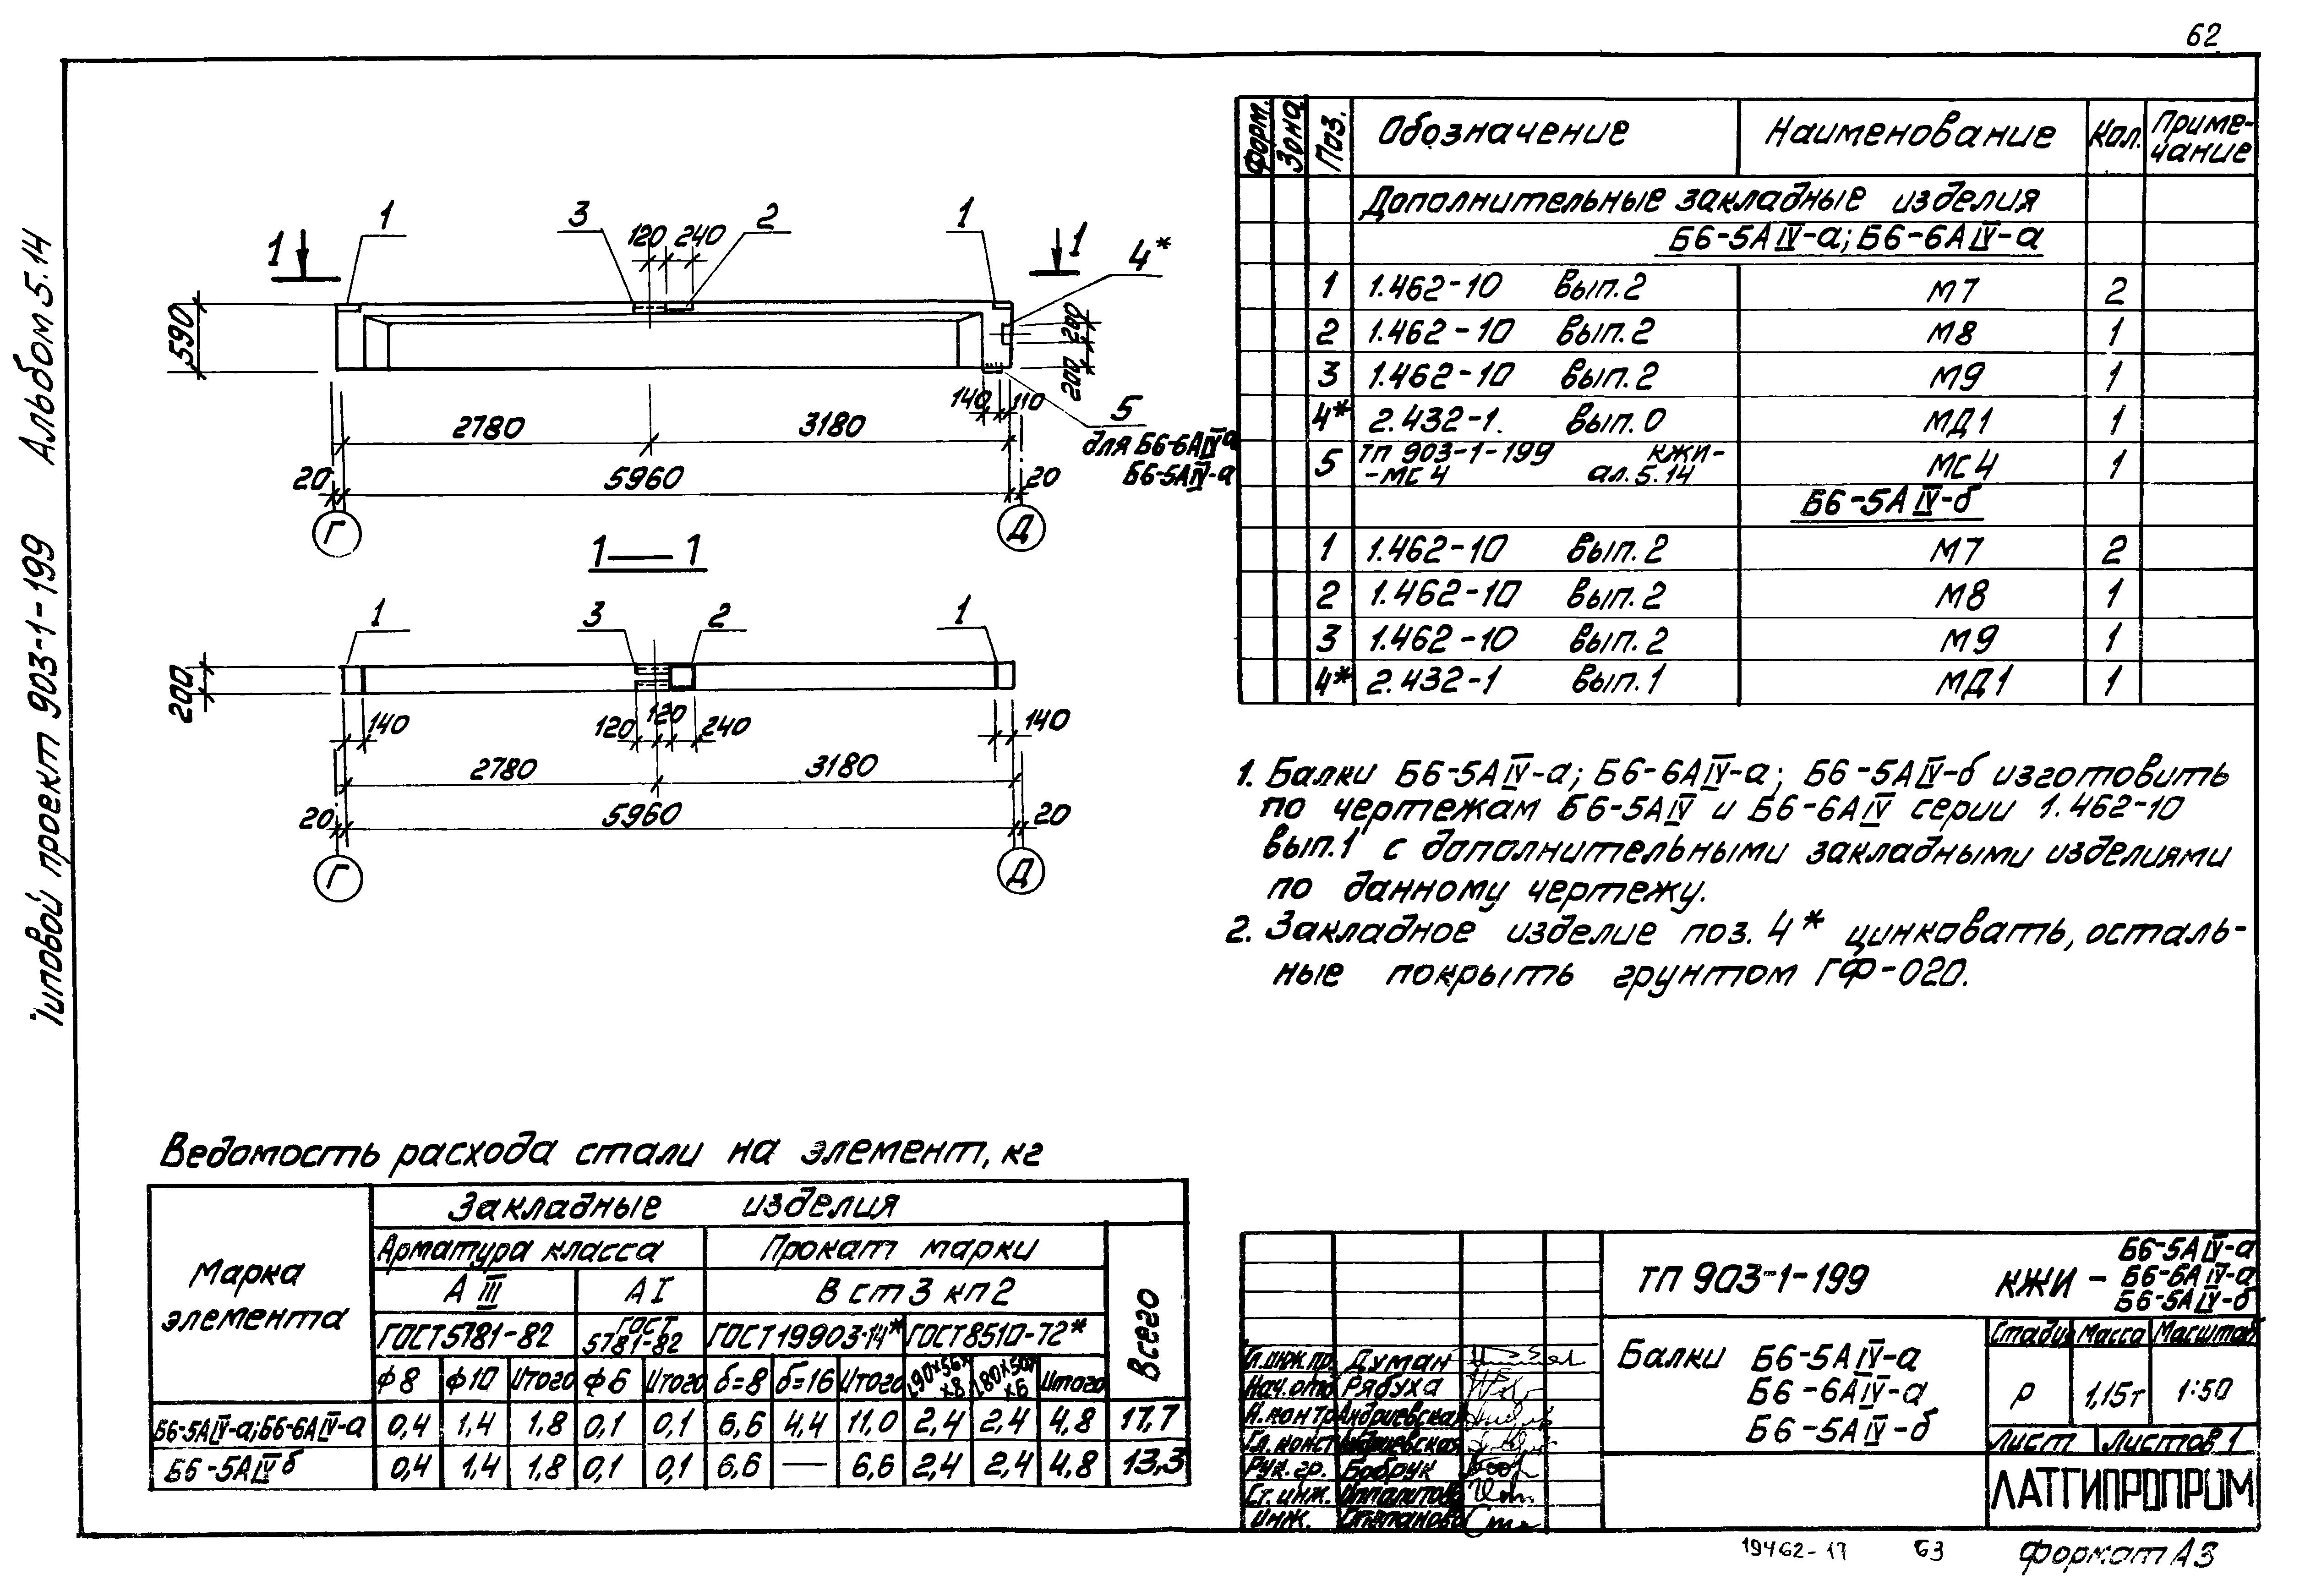 62
Типовой проект 903-1-199 Альбом 5.14
1 1 3 120 240 2 1 1 4*
590
200 200
140 110
5
для Б6-6АIV-а
Б6-5АIV-а
2780 3180
20 5960 20
Г Д
1—1
1 3 2 1
200
140 120 120 240 140
2780 3180
20 5960 20
Г Д
Форм. Зона Поз. Обозначение Наименование Кол. Приме-
чание
Дополнительные закладные изделия
Б6-5АIV-а; Б6-6АIV-а
1 1.462-10 вып.2 М7 2
2 1.462-10 вып.2 М8 1
3 1.462-10 вып.2 М9 1
4* 2.432-1. вып.0 МД1 1
5 ТП 903-1-199 КЖИ-
-МС4 ал.5.14 МС4 1
Б6-5АIV-б
1 1.462-10 вып.2 М7 2
2 1.462-10 вып.2 М8 1
3 1.462-10 вып.2 М9 1
4* 2.432-1 вып.1 МД1 1
1. Балки Б6-5АIV-а; Б6-6АIV-а; Б6-5АIV-б изготовить
по чертежам Б6-5АIV и Б6-6АIV серии 1.462-10
вып.1 с дополнительными закладными изделиями
по данному чертежу.
2. Закладное изделие поз. 4* цинковать, осталь-
ные покрыть грунтом ГФ-020.
Ведомость расхода стали на элемент, кг
Марка элемента
Закладные изделия
Арматура класса Прокат марки
А III А I В ст 3 кп2
ГОСТ 5781-82 ГОСТ 5781-82 ГОСТ 19903-74* ГОСТ 8510-72*
Всего
ф8 ф10 Итого ф6 Итого б=8 б=16 Итого L90×56×8 L80×50×6 Итого
Б6-5АIV-а;Б6-6АIV-а 0,4 1,4 1,8 0,1 0,1 6,6 4,4 11,0 2,4 2,4 4,8 17,7
Б6-5АIV б 0,4 1,4 1,8 0,1 0,1 6,6 — 6,6 2,4 2,4 4,8 13,3
ТП 903-1-199 КЖИ - Б6-5АIV-а
Б6-6АIV-а
Б6-5АIV-б
Балки Б6-5АIV-а
Б6-6АIV-а
Б6-5АIV-б
Стадия Масса Масштаб
Р 1,15т 1:50
Лист Листов 1
ЛАТГИПРОПРОМ
Гл.инж.пр. Думан
Нач.отд Рябуха
Н.контр Андриевская
Гл.конст Андриевская
Рук.гр. Бобрук
Ст.инж. Ипполитова
Инж. Степанова
19462-17 63 Формат А3